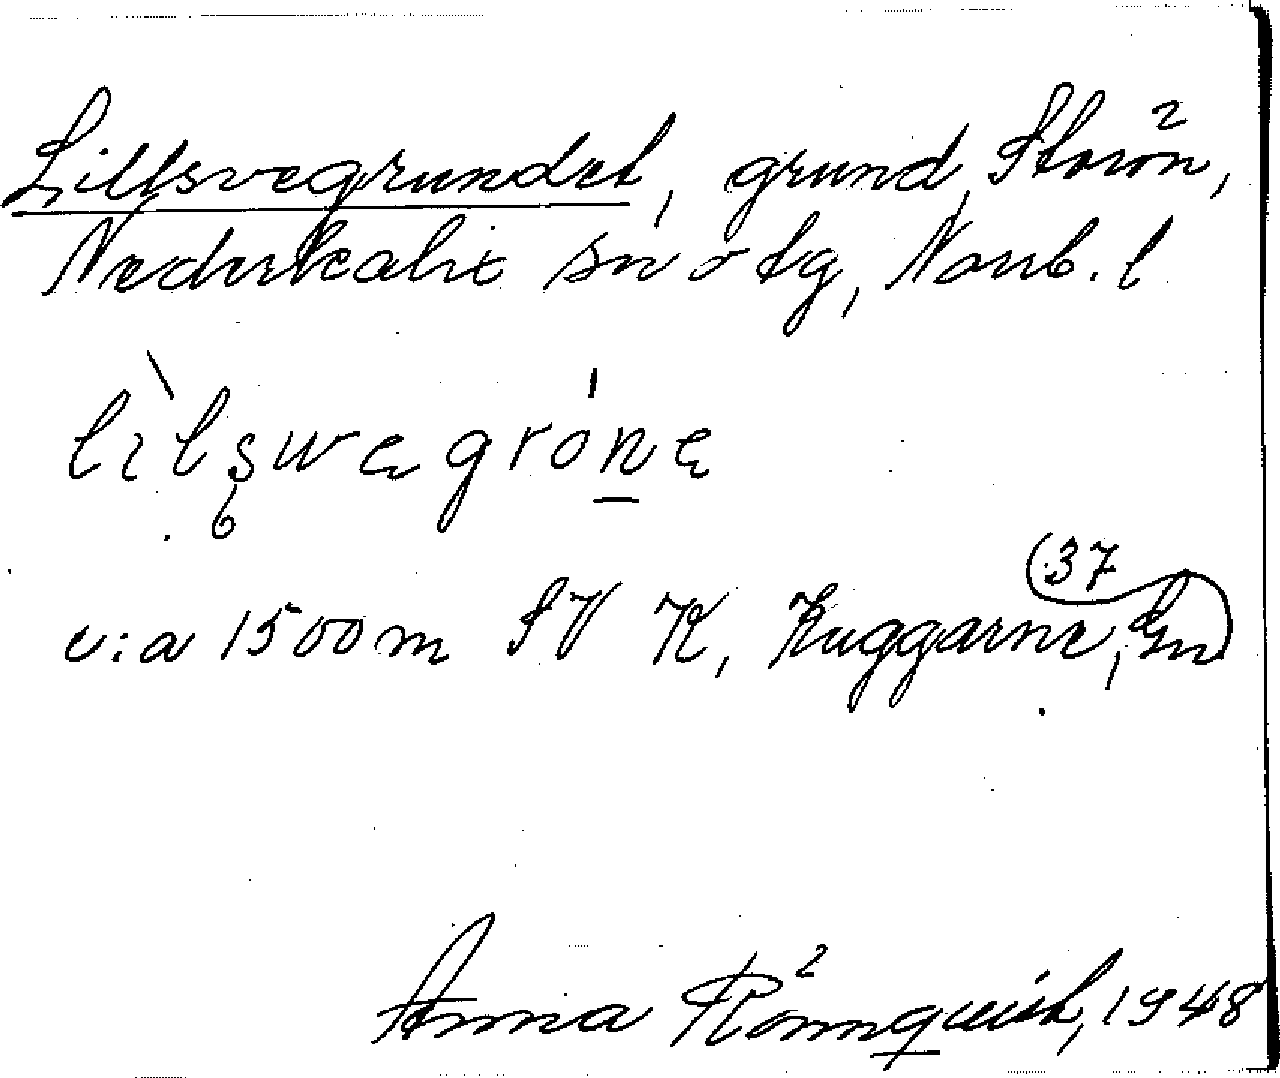 Lillsvegrundet, grund, Storön,
Nederkalix sn o tg, Norrb. l
lìlswegróne
c:a 1500m SV K, Kuggarne,
37
Anna Rönnqvist, 1948